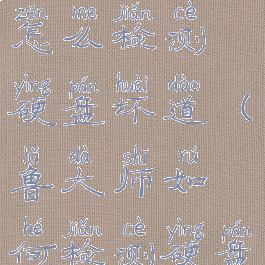 zěn me jiǎn cè
怎么检测
yìng pán huài dào
硬盘坏道（
lǔ dà shī rú
鲁大师如
hé jiǎn cè yìng pán
何检测硬盘